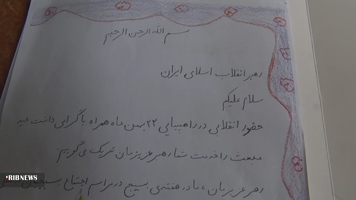 بسم الله الرحمن الرحیم
رهبر انقلاب اسلامی ایران
سلام علیکم
حضور انقلابی در راهپیمایی ۲۲ بهمن ماه همراه با گرامی داشت
خدمت شما رهبر عزیزمان تبریک می‌گویم
رهبر عزیزمان در مراسم
RIBNEWS